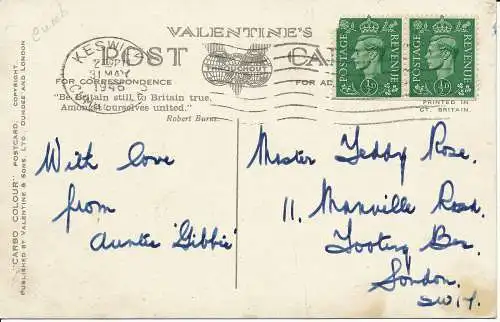 Cumb
VALENTINE'S
POST CARD
FOR CORRESPONDENCE
FOR AD
"Be Britain still to Britain true,
Amongst ourselves united."
Robert Burns.
KESWICK
31 MAY
1946
THROUGHOUT
POSTAGE REVENUE
½D
POSTAGE REVENUE
½D
PRINTED IN
GT. BRITAIN.
"CARBO COLOUR" POSTCARD. COPYRIGHT.
PUBLISHED BY VALENTINE & SONS, LTD. DUNDEE AND LONDON
With love
from
Auntie 'Gibbie'
Master Teddy Rose.
11. Manville Road.
Tooting Bec.
London.
S.W.17.